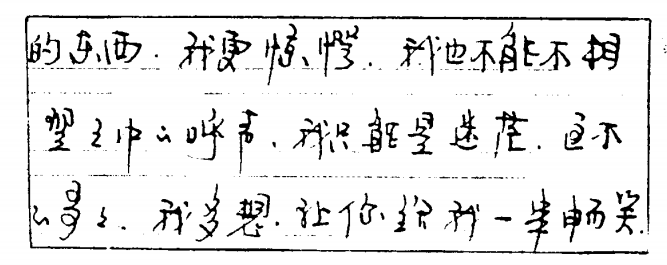 的东西.我更惊愕.我也不能不相
望之中心呼声、我只能是迷茫.这不
心.我多想.让你给我一半的笑.